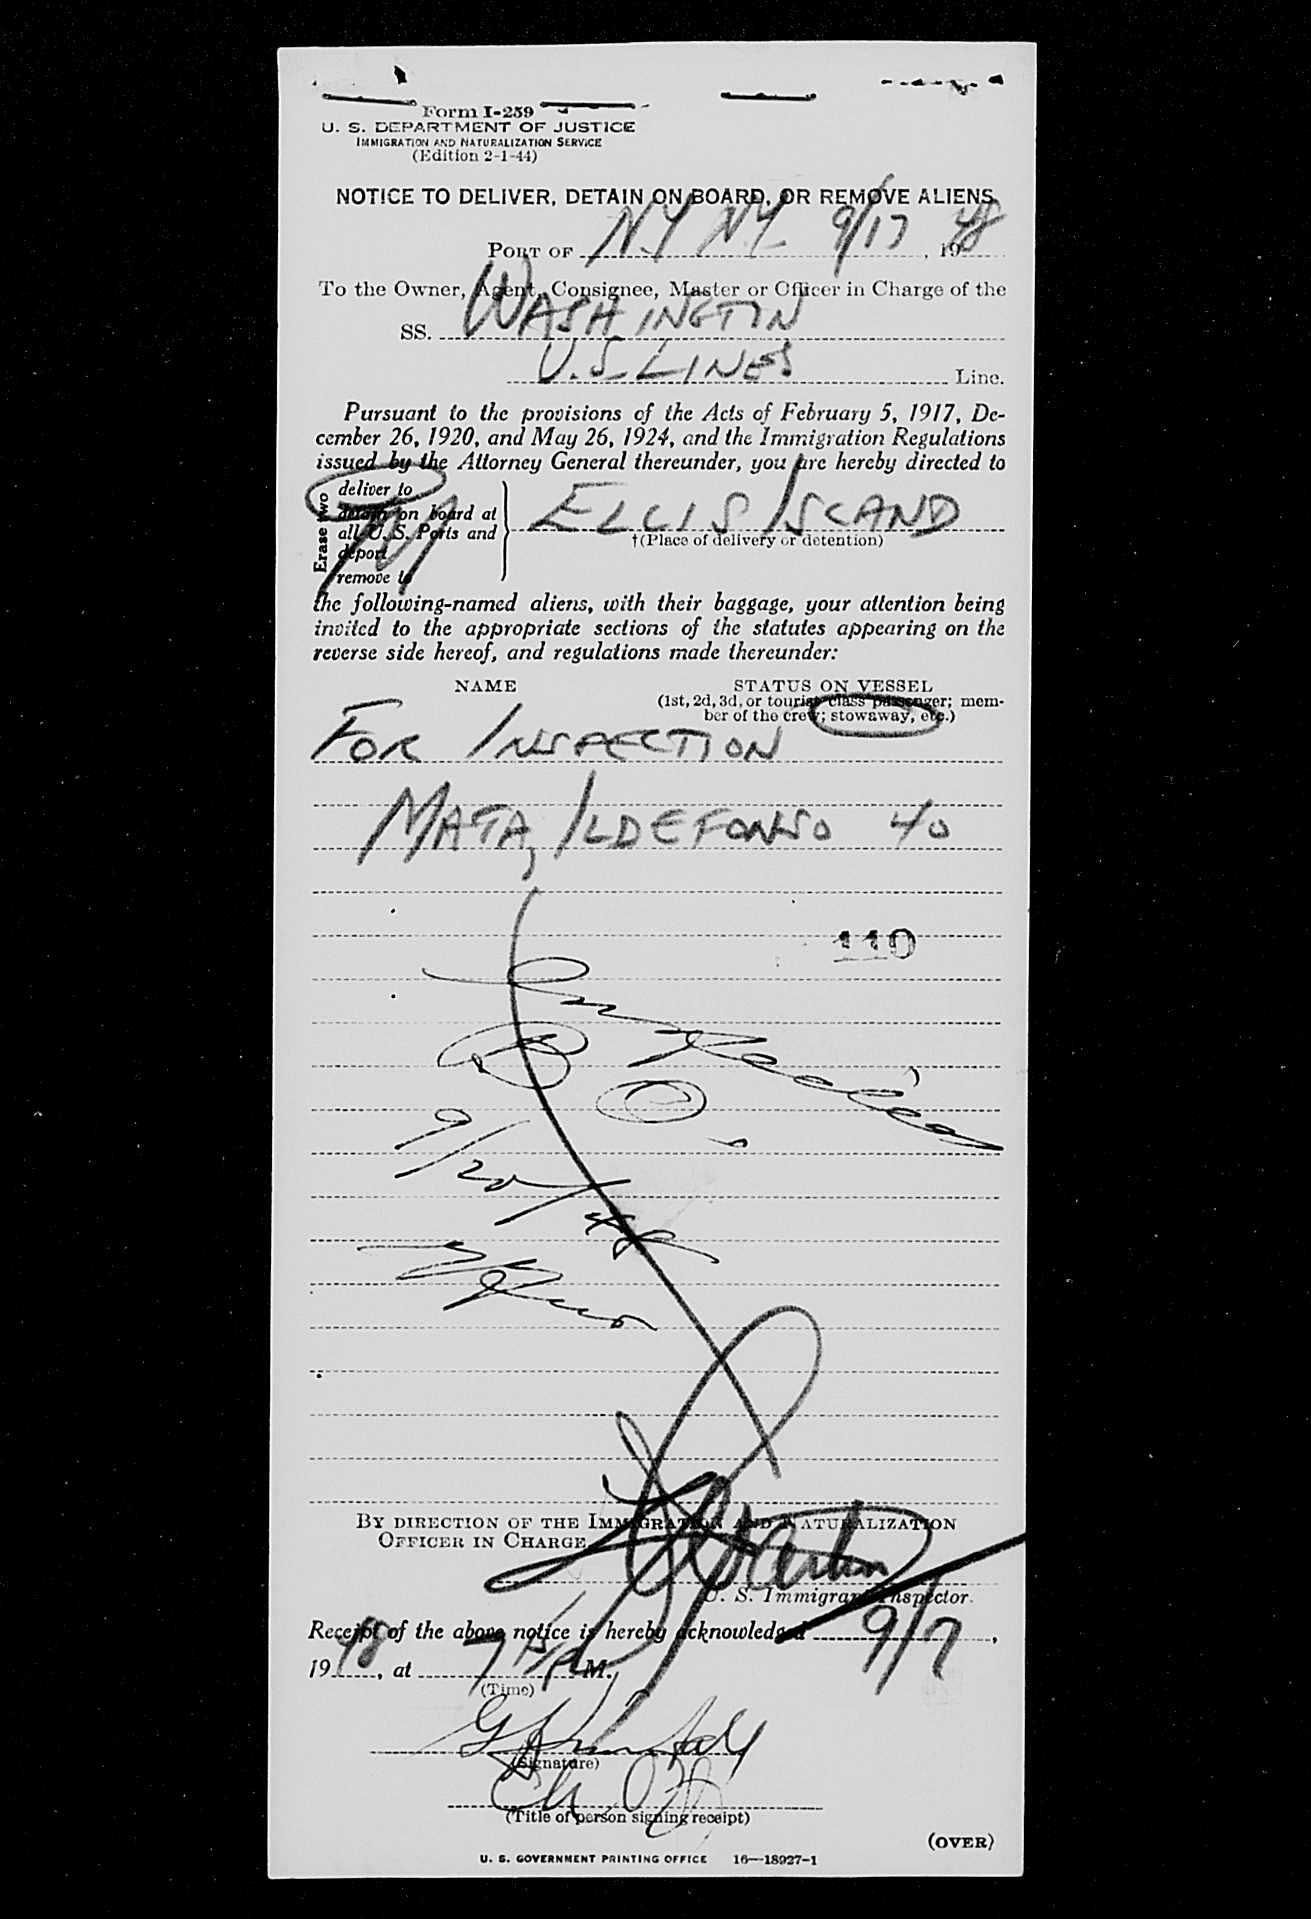 Form I-259
U. S. DEPARTMENT OF JUSTICE
IMMIGRATION AND NATURALIZATION SERVICE
(Edition 2-1-44)
NOTICE TO DELIVER, DETAIN ON BOARD, OR REMOVE ALIENS
PORT OF NY NY 9/17, 1948
To the Owner, Agent, Consignee, Master or Officer in Charge of the
SS. WASHINGTON
U.S. LINES Line.
Pursuant to the provisions of the Acts of February 5, 1917, De-
cember 26, 1920, and May 26, 1924, and the Immigration Regulations
issued by the Attorney General thereunder, you are hereby directed to
Erase two
deliver to
detain on board at
all U. S. Ports and
deport
remove to
ELLIS ISLAND
†(Place of delivery or detention)
the following-named aliens, with their baggage, your attention being
invited to the appropriate sections of the statutes appearing on the
reverse side hereof, and regulations made thereunder:
NAME STATUS ON VESSEL
(1st, 2d, 3d, or tourist class passenger; mem-
ber of the crew; stowaway, etc.)
FOR INSPECTION
MATA, ILDEFONSO 40
110
9/20/48
BY DIRECTION OF THE IMMIGRATION AND NATURALIZATION
OFFICER IN CHARGE
U. S. Immigrant Inspector.
Receipt of the above notice is hereby acknowledged 9/17,
1948, at 7 PM.
(Time)
(Signature)
(Title of person signing receipt)
(OVER)
U. S. GOVERNMENT PRINTING OFFICE 16—18927-1